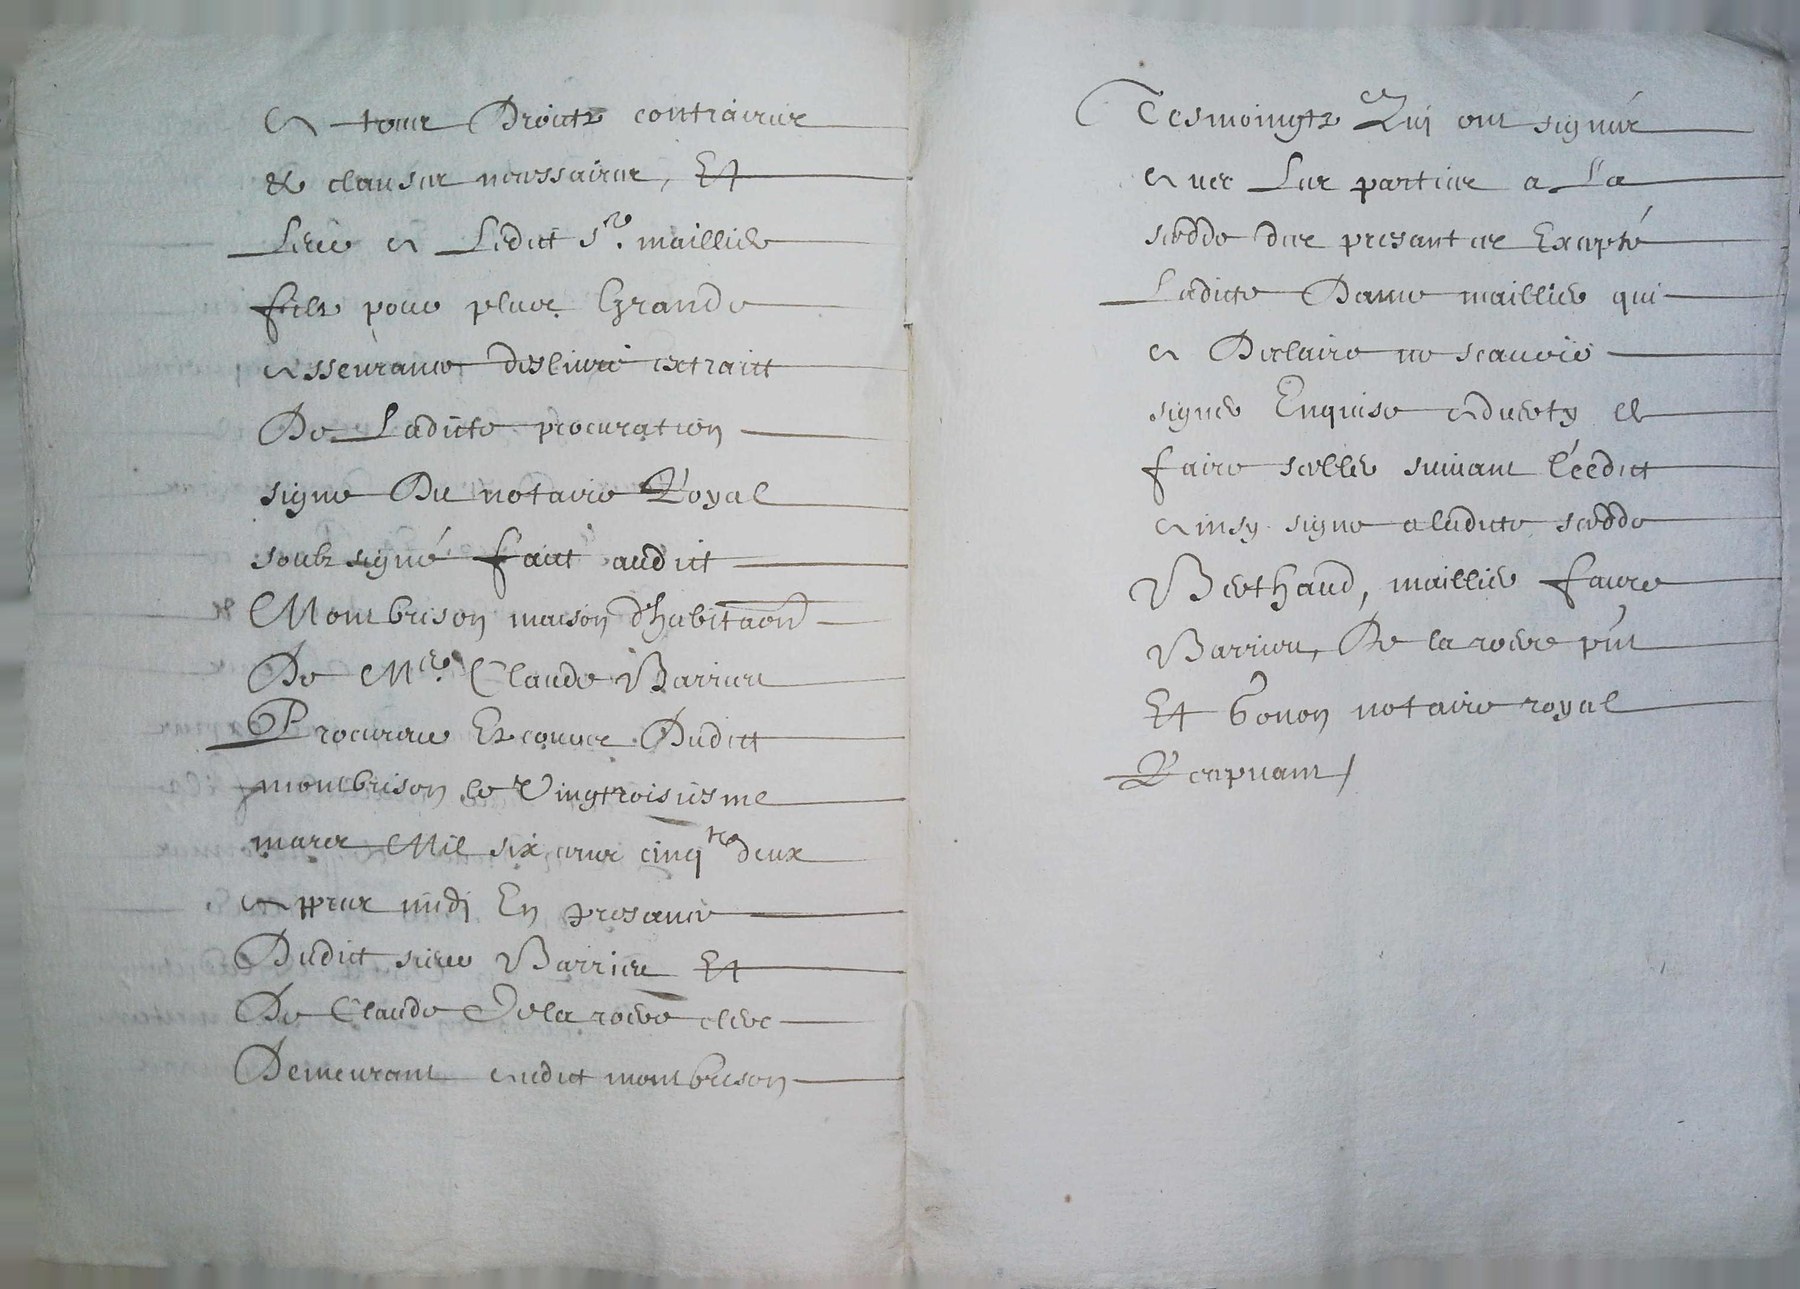 A tous Droicts contraires
& clauses necessaires, Et
Luy a Ledict Sr. maillier
fils pour plus Grande
asseurance deslivré extraict
De Ladicte procuration
signe Du notaire Royal
soubsigné faict audict
Montbrison maison d'habitaon
De Me. Claude Barrieu
Procureur Es cours Dudict
montbrison le Vingtroisiesme
mars Mil six cens cinqte deux
appres midi En presance
Dudict sieur Barrieu Et
De Claude Delaroere clerc
Demeurant audict montbrison
Tesmoingts Qui ont signés
avec Les parties a La
scedde des presantes Excepté
Ladicte Dame maillier qui
a Declaire ne scavoir
signer Enquise aduerty de
faire sceller suivant l'éedict
ainsy signe a ladicte scedde
Berthaud, maillier faure
Barrieu, De la roere pnt
Et Gonon notaire royal
Recepvant /